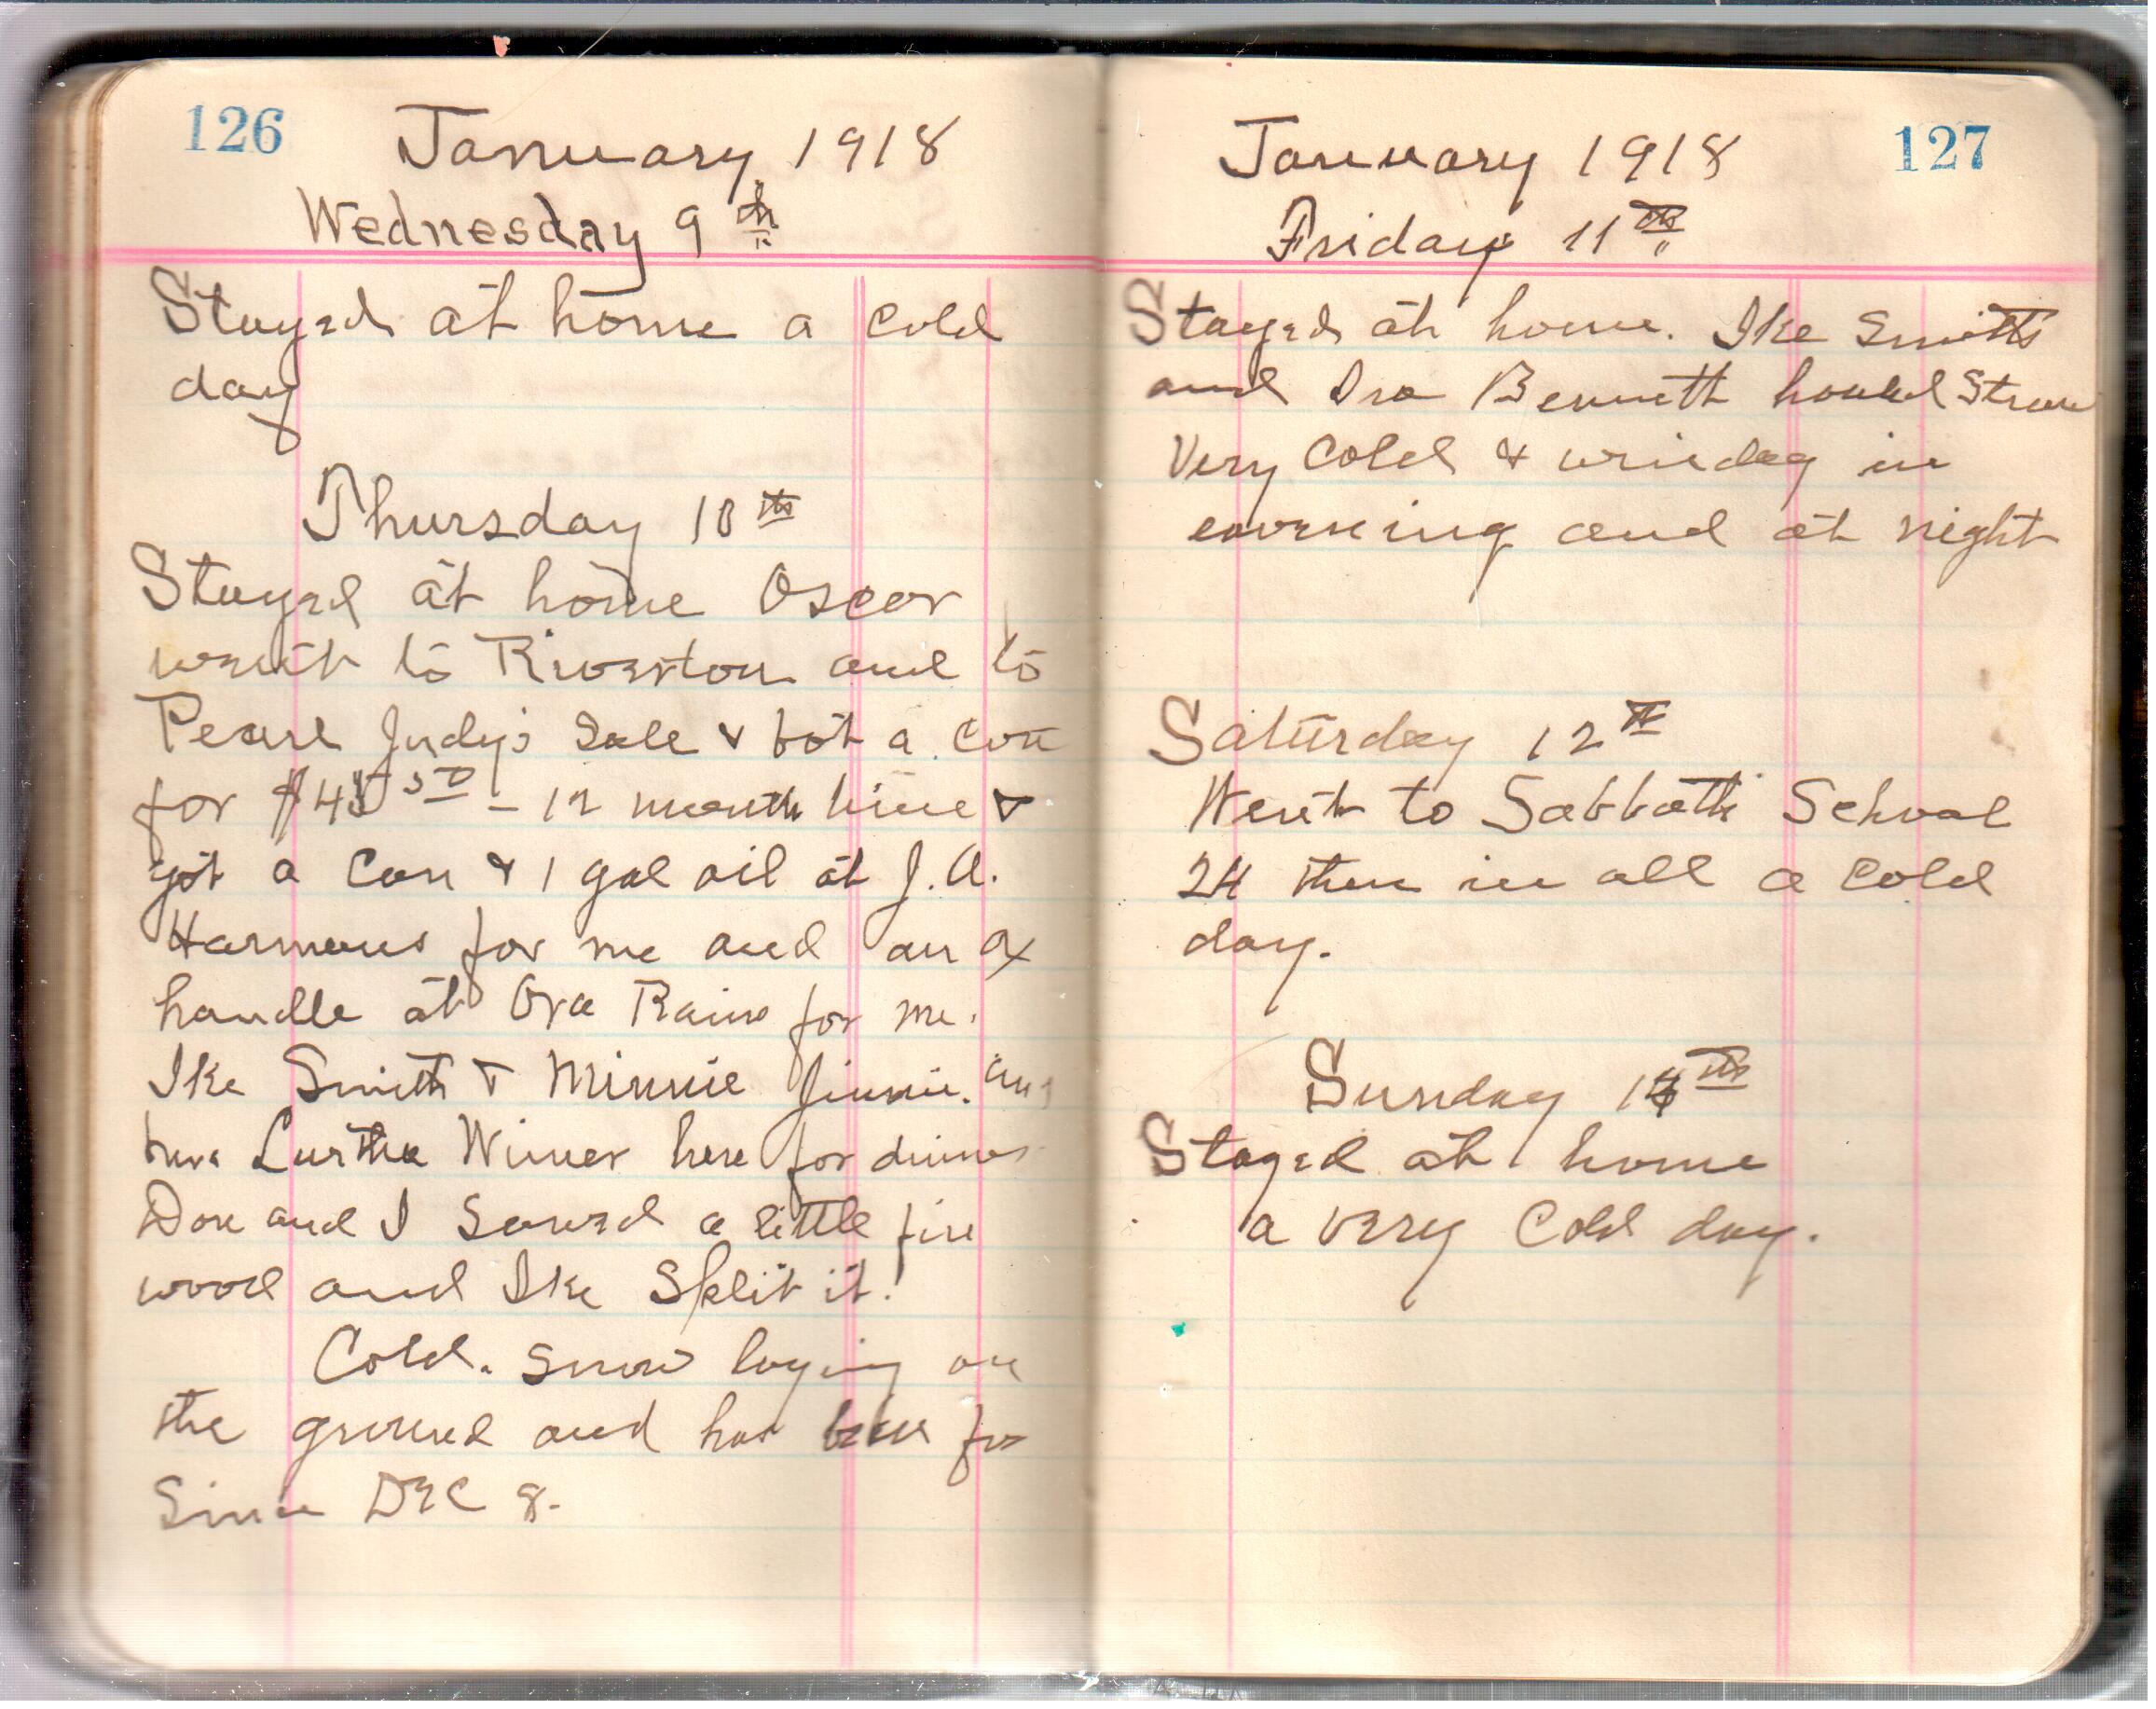 126
January 1918
Wednesday 9th
Stayed at home a cold
day
Thursday 10th
Stayed at home Oscor
went to Riverton and to
Pearl Judy's Sale & bot a cow
for $ 50 - 12 month time &
got a Can & 1 gal oil at J. A.
Harmons for me and an ax
handle at Ora Rains for me.
Ike Smith & Minnie Jinnie. and
Lurtha Winer here for dinner
Don and I Sawed a little fire
wood and Ike Split it.
Cold. Snow laying on
the ground and has been for
Since DEC 8.
127
January 1918
Friday 11th
Stayed at home. Ike Smith
and Ira Bennett hauled Straw
Very Cold & winday in
evening and at night
Saturday 12th
Went to Sabbath School
24 ther in all a cold
day.
Sunday 13th
Stayed at home
a very Cold day.